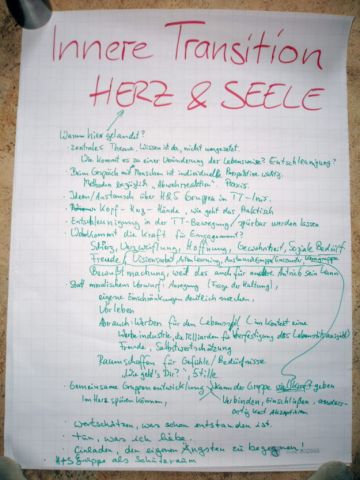 Innere Transition
HERZ & SEELE
Warum hier gelandet?
• zentrales Thema, Wissen ist da, nicht umgesetzt.
Wie kommt es zu einer Veränderung der Lebensweise? Entschleunigung?
• Beim Gespräch mit Menschen ist individuelle Perspektive wichtig.
Methoden bezüglich „Abwehrreaktion". Praxis.
• Ideen/Austausch über H&S Gruppen im TT-Inis.
• Kopf - Herz - Hände, wie geht das praktisch
• Entschleunigung in der TT-Bewegung spürbar werden lassen
• Woher kommt die Kraft für Engagement?
Schmerz, Verzweiflung, Hoffnung, Gewohnheit, Soziale Bedürf
Freude, Visionssuche
Bewusstmachung, weil das auch für andere Antrieb sein kann
• Statt moralischem Vorwurf: Anregung (Frage der Haltung),
eigene Einschränkungen deutlich machen,
Vorleben
Werben für den Lebensstil (im Kontext einer
Werbeindustrie, die Milliarden für Verfestigung des Lebensstils ausgibt)
Freude, Selbstwertschätzung
Raum schaffen für Gefühle/Bedürfnisse
„Wie geht's Dir?", Stille
• Gemeinsame Gruppenentwicklung kann der Gruppe viel Kraft geben
Im Herz spüren können, Verbinden, Einschließen, anders-
artigkeit akzeptieren
• wertschätzen, was schon entstanden ist.
• tun, was ich liebe.
• Einladen, den eigenen Ängsten zu begegnen!
• H+S Gruppe als Schutzraum